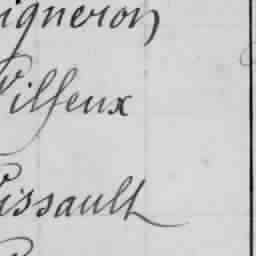 igneron
Vilfeux
issault